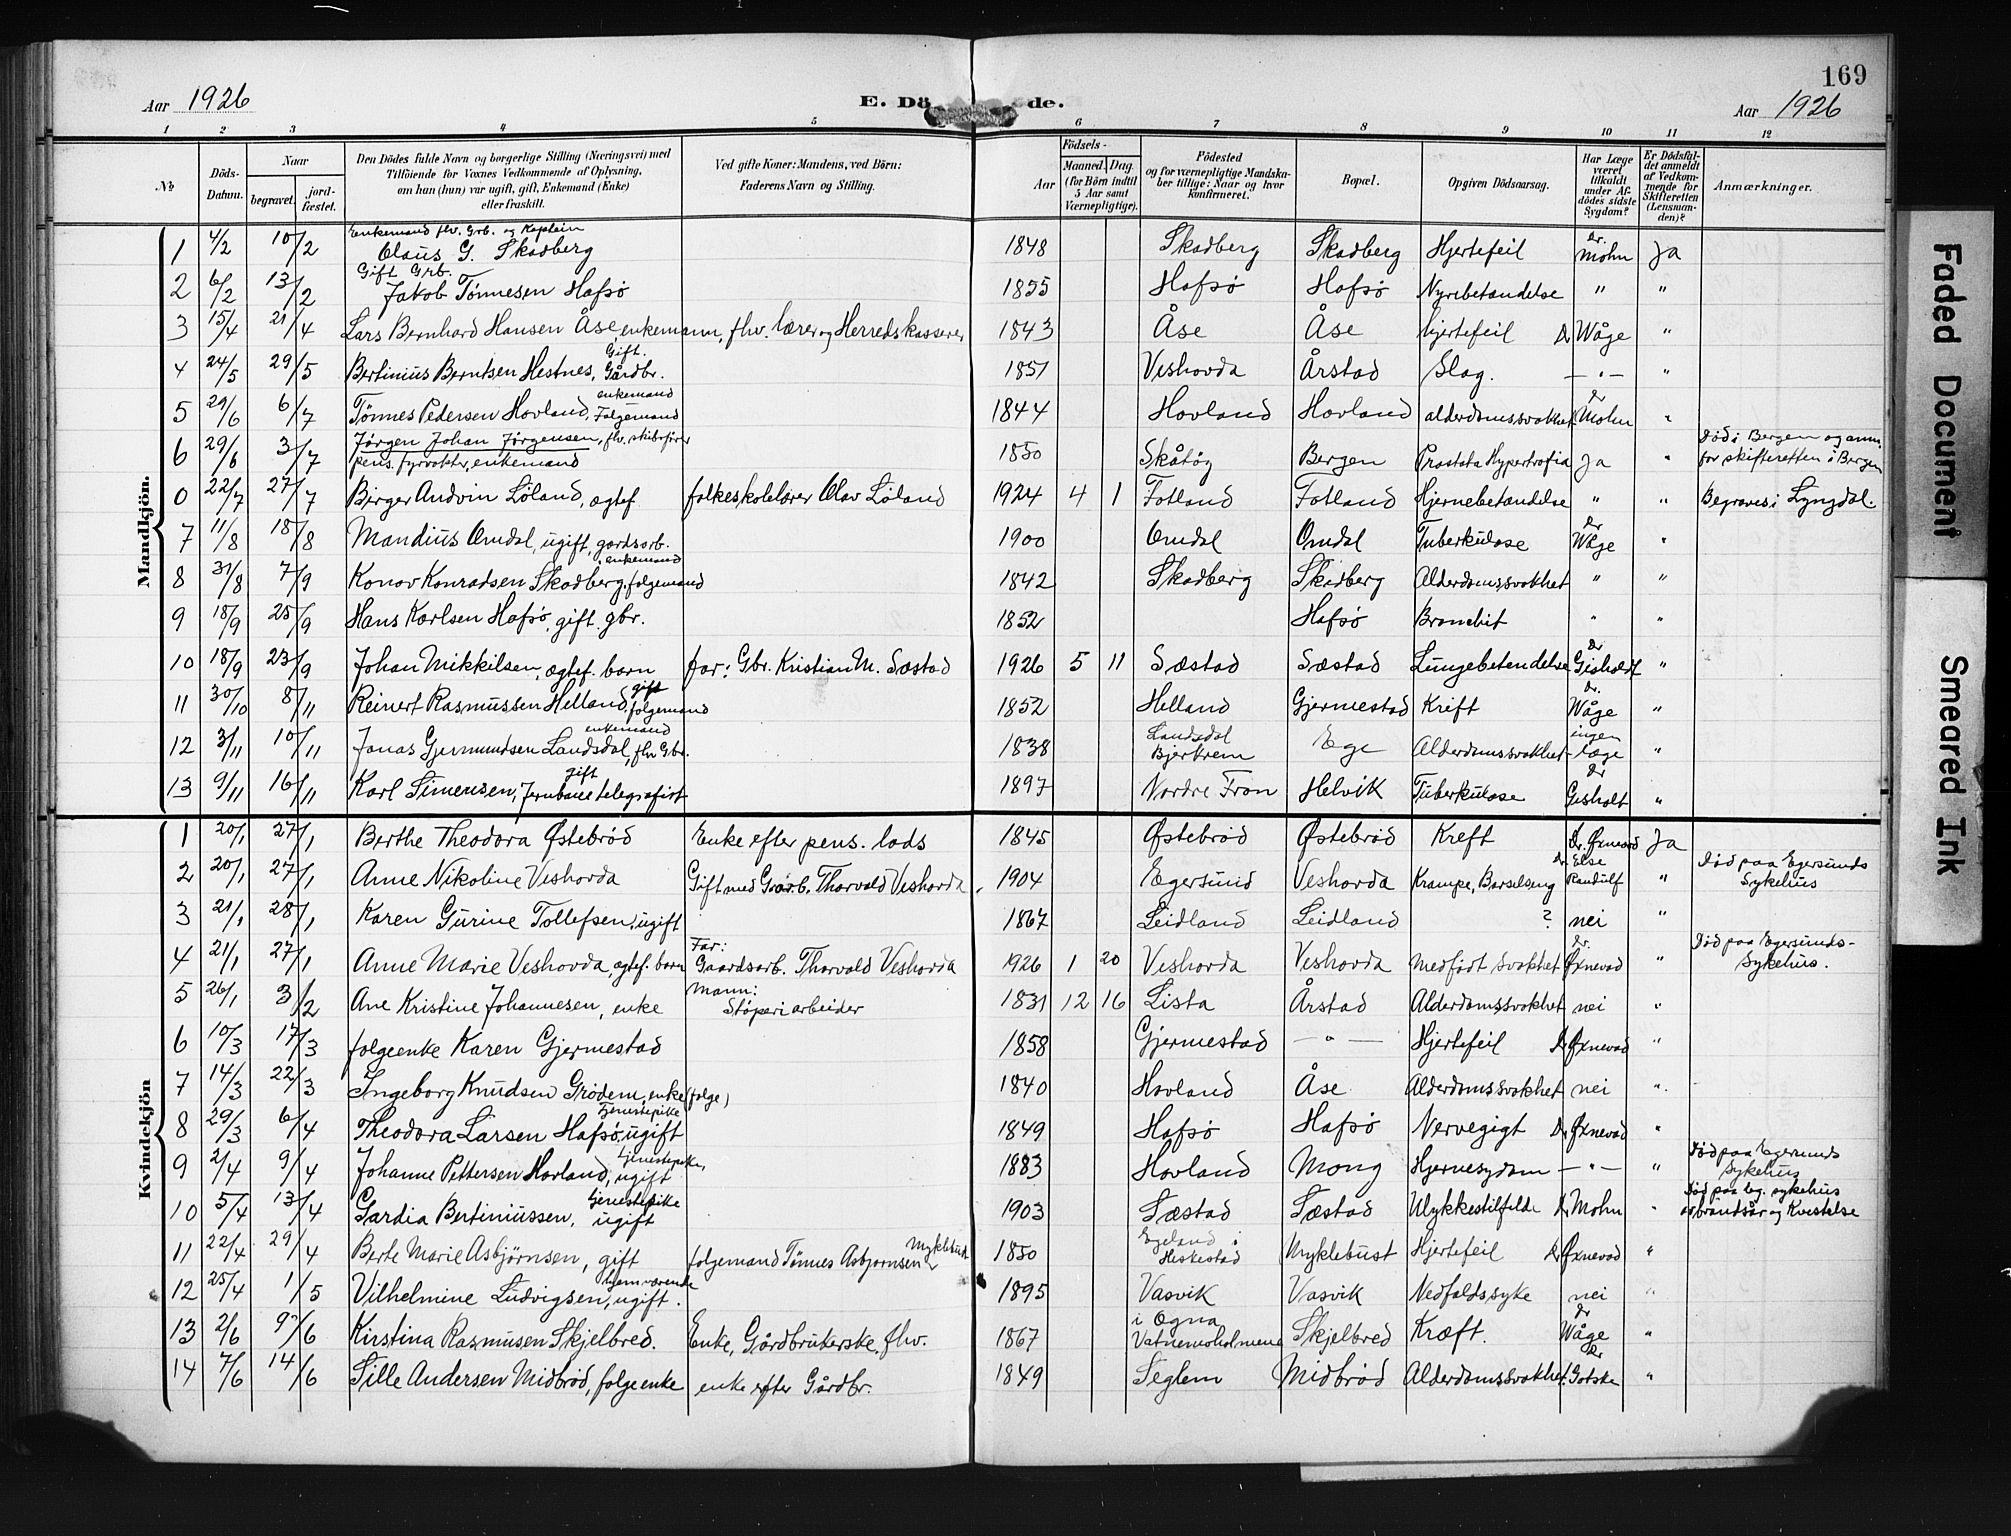 169
Aar 1926 E. Dö de. Aar 1926
1 2 3 4 5 6 7 8 9 10 11 12
No Döds-Datum. Naar begravet. jord-fæstet. Den Dödes fulde Navn og borgerlige Stilling (Næringsvei) med Tilföiende for Voxnes Vedkommende af Oplysning, om han (hun) var ugift, gift, Enkemand (Enke) eller fraskilt. Ved gifte Koner: Mandens, ved Börn: Faderens Navn og Stilling. Födsels- Aar Maaned. Dag. (for Börn indtil 5 Aar samt Værnepligtige). Födested og for værnepligtige Mandska-ber tillige: Naar og hvor konfirmeret. Bopæl. Opgiven Dödsaarsag. Har Læge været tilkaldt under Af-dödes sidste Sygdom? Er Dödsfal-det anmeldt af Vedkom-mende for Skifteretten (Lensman-den)? Anmærkninger.
Mandkjön.
1 4/2 10/2 Enkemand flv. Grb. og Kaptein Claus G. Skadberg 1848 Skadberg Skadberg Hjertefeil Dr. Mohn Ja
2 6/2 13/2 Gift Grb. Jakob Tönnesen Hafsø 1855 Hafsø Hafsø Nyrebetændelse " "
3 15/4 21/4 Lars Bernhard Hansen Åse enkemann, fhv. lærer og Herredskasserer 1843 Åse Åse hjertefeil Dr Wåge "
4 24/5 29/5 Bertinius Berntsen Hestnes, Gift. Gårdbr. 1851 Veshovda Årstad Slag. — " — "
5 29/6 6/7 Tønnes Pedersen Hovland, enkemand Følgemand 1844 Hovland Hovland alderdomssvakhet Dr Mohn "
6 29/6 3/7 Jørgen Johan Jørgensen, flv. skibsfører pens. fyrvokter, enkemand 1850 Skåtøy Bergen Prostata Hypertrofia Ja " Død i Bergen og anm. for skifteretten i Bergen
0 22/7 27/7 Birger Andvin Løland, ægtef folkeskolelærer Olav Løland 1924 4 1 Fotland Fotland Hjernebetændelse " " Begraves i Lyngdal.
7 11/8 18/8 Mandius Omdal, ugift, gardsarb. 1900 Omdal Omdal Tuberkulose Dr Wåge "
8 31/8 7/9 Konov Konradsen Skadberg, enkemand følgemand 1842 Skadberg Skadberg Alderdomssvakhet " "
9 18/9 25/9 Hans Karlsen Hafsø, gift. gbr. 1852 Hafsø Bronchit " "
10 18/9 23/9 Johan Mikkilsen, ægtef. barn far: Gbr. Kristian M. Sæstad 1926 5 11 Sæstad Sæstad Lungebetendelse Dr Gisholdt "
11 30/10 8/11 Reinert Rasmussen Helland, gift følgemand 1852 Helland Gjermestad Kreft Dr. Wåge "
12 3/11 10/11 Jonas Gjermundsen Landsdal, enkemand flv Gbr. 1838 Landsdal Bjerkrem Ege Alderdomssvakhet ingen læge "
13 9/11 16/11 Karl Simensen, gift Jernbanetelegrafist 1897 Nordre Fron Helvik Tuberkulose Dr Gisholt "
Kvindekjön
1 20/1 27/1 Berthe Theodora Østebrød Enke efter pens. lods 1845 Østebrød Østebrød Kreft Dr. Øxnevad Ja
2 20/1 27/1 Anne Nikoline Veshovda Gift med Gaarb. Thorvald Veshovda. 1904 Egersund Veshovda Krampe, Barselseng Dr Else Randulf " Død paa Egersunds Sykehus
3 21/1 28/1 Karen Gurine Tollefsen, ugift 1867 Leidland Leidland ? nei "
4 21/1 27/1 Anne Marie Veshovda, ægtef. barn Far: Gaardsarb. Thorvald Veshovda 1926 1 20 Veshovda Veshovda Medfødt svakhet Dr. Øxnevad " Død paa Egersunds-Sykehus.
5 26/1 3/2 Ane Kristine Johannesen, enke Mann: Støperiarbeider 1831 12 16 Lista Årstad Alderdomssvakhet nei "
6 10/3 17/3 følgeenke Karen Gjermestad 1858 Gjermestad — " — Hjertefeil Dr Øxnevad "
7 14/3 22/3 Ingeborg Knudsen Grødem, enke (følge) 1840 Hovland Åse Alderdomssvakhet nei "
8 29/3 6/4 Theodora Larsen Hafsø, Tjenestepike ugift 1849 Hafsø Hafsø Nervegigt Dr Øxnevad "
9 2/4 9/4 Johanne Pettersen Hovland, tjenestepike, ugift 1883 Hovland Mong Hjernesygdom — " — " Død paa Egersunds Sykehus
10 5/4 13/4 Gardia Bertiniussen, tjenestepike ugift 1903 Sæstad Sæstad Ulykkestilfelde Dr Mohn " Død paa Eg. sykehus av brandsår og Kvestelse
11 22/4 29/4 Berte Marie Asbjørnsen, gift følgemand Tønnes Asbjørnsen Myklebust 1850 Egeland i Heskestad Myklebust Hjertefeil Dr Øxnevad "
12 25/4 1/5 Vilhelmine Ludvigsen, hjemværende ugift. 1895 Vasvik Vasvik Nedfaldssyke nei "
13 2/6 9/6 Kirstina Rasmusen Skjelbred. Enke, Gårdbrukerske, flv. 1867 i Ogna Vatnemoholmene Skjelbred Kræft. Dr Wåge "
14 7/6 14/6 Sille Andersen Midbrød, følgeenke enke efter Gårdbr. 1849 Seglem Midbrød Alderdomssvakhet. Dr "
Faded Document
Smeared Ink